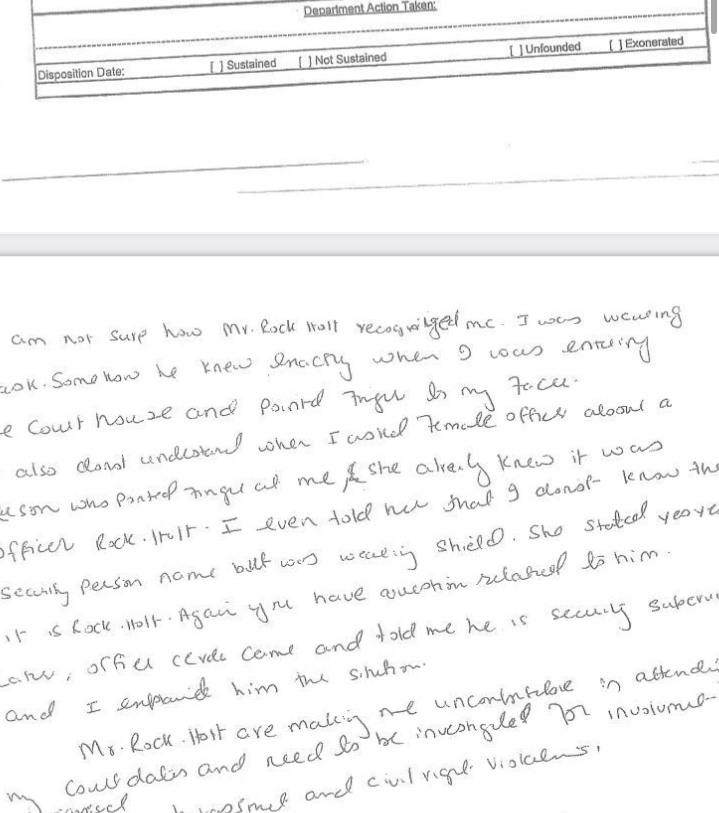 Department Action Taken:
Disposition Date: [ ] Sustained [ ] Not Sustained [ ] Unfounded [ ] Exonerated
am not sure how Mr. Rock Holt recognized me. I was wearing
ask. Some how he knew when I was entering
e Court house and pointed finger in my face.
also donot understand when I asked Female officer about a
erson who pointed finger at me & she already knew it was
officer Rock. Holt. I even told her that I donot know the
security person name but was wearing shield. She stated yes
it is Rock. Holt. Again you have question related to him.
Later, officer came and told me he is security
and I him the
Mr. Rock. Holt are making me uncomfortable in
my Court dates and need to be for
and civil right